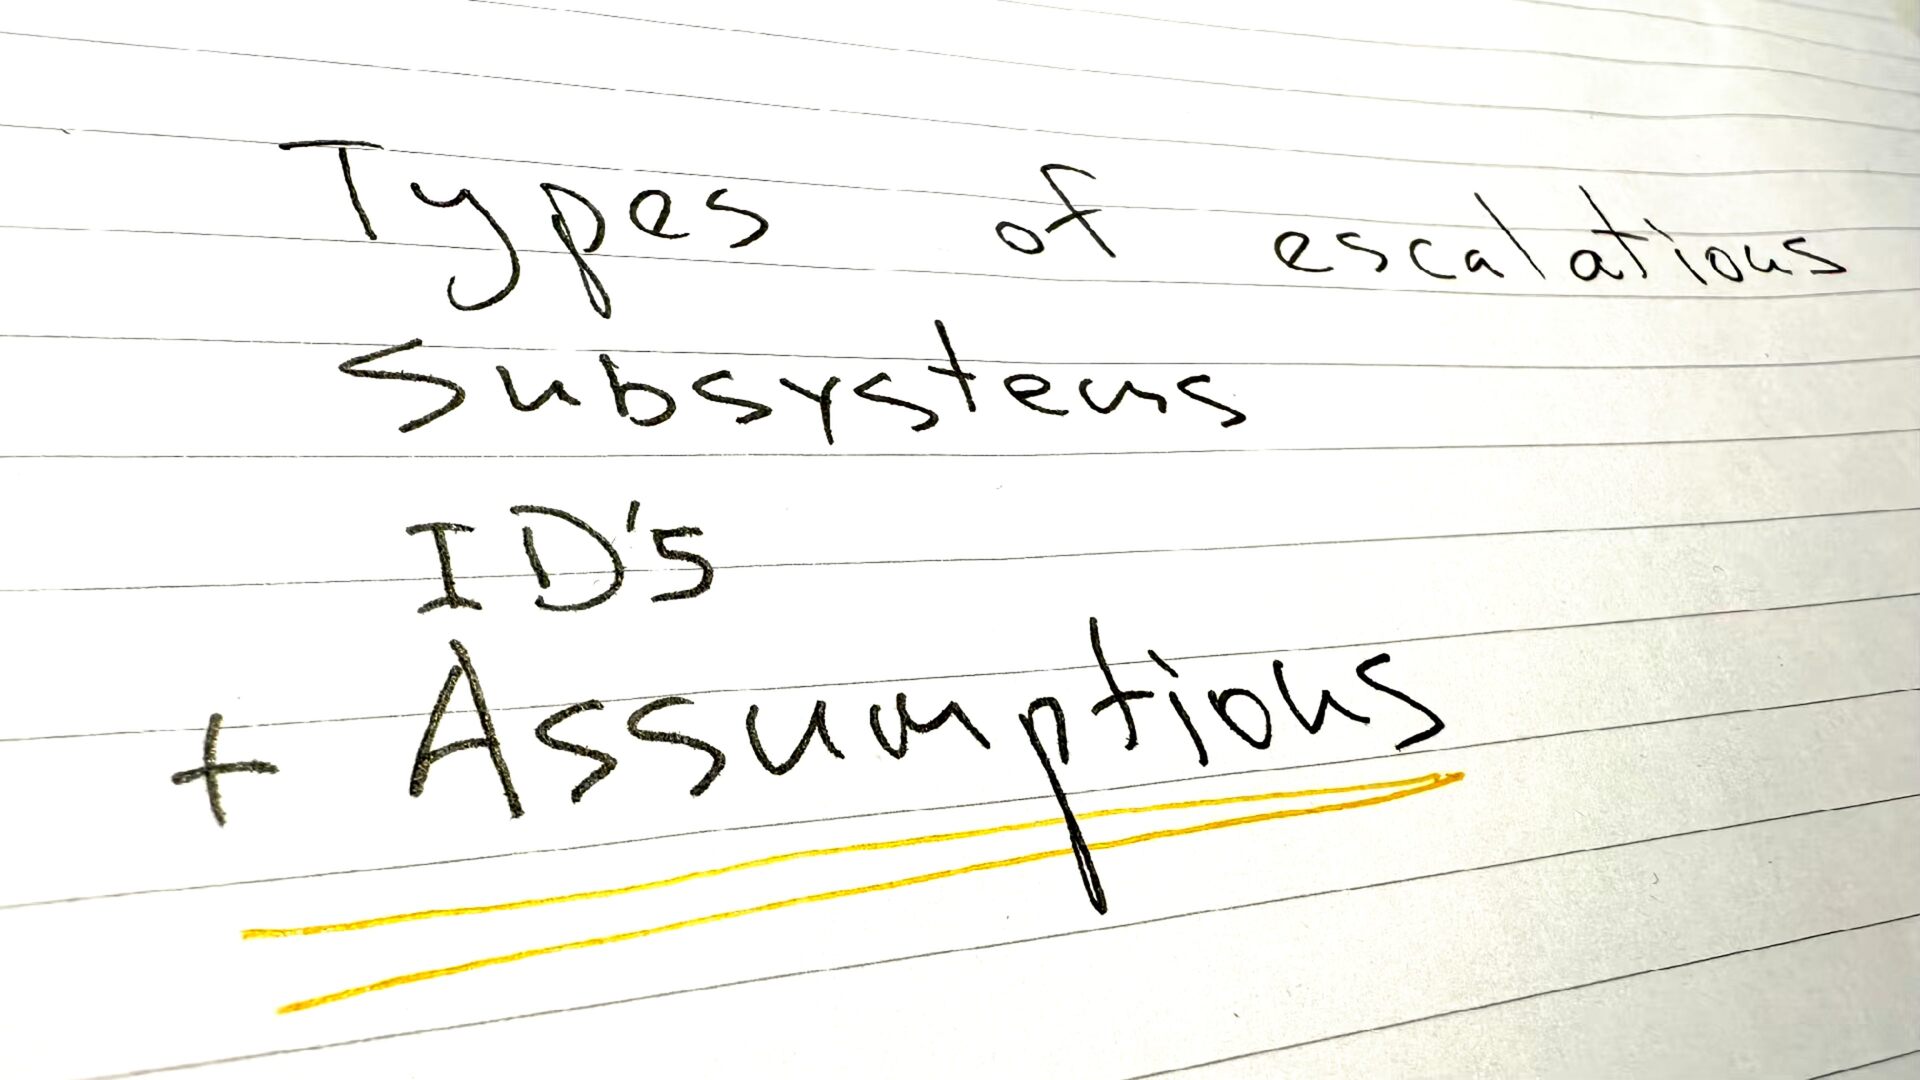 Types of escalations
Subsystems
ID's
+ Assumptions